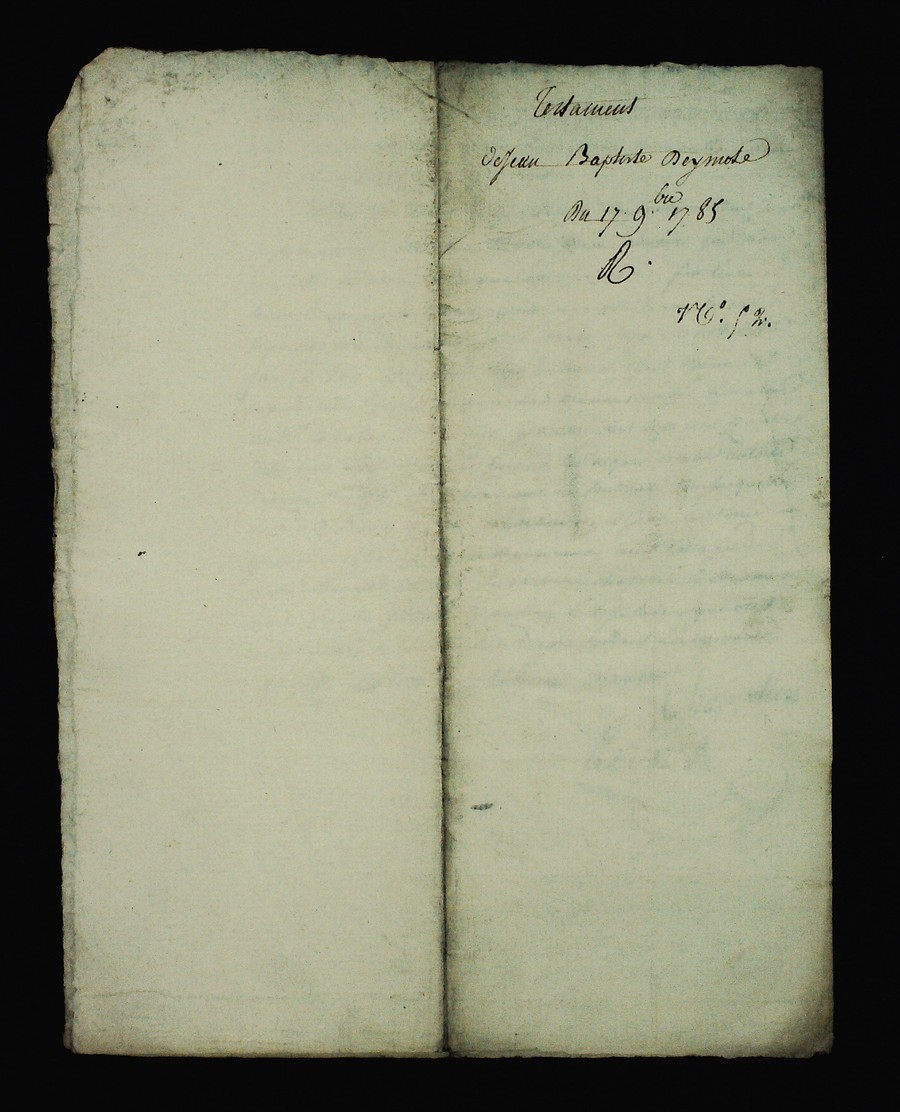 Testament
de Jean Baptiste Deymote
Du 17 9.bre 1785
R.
No. 52.